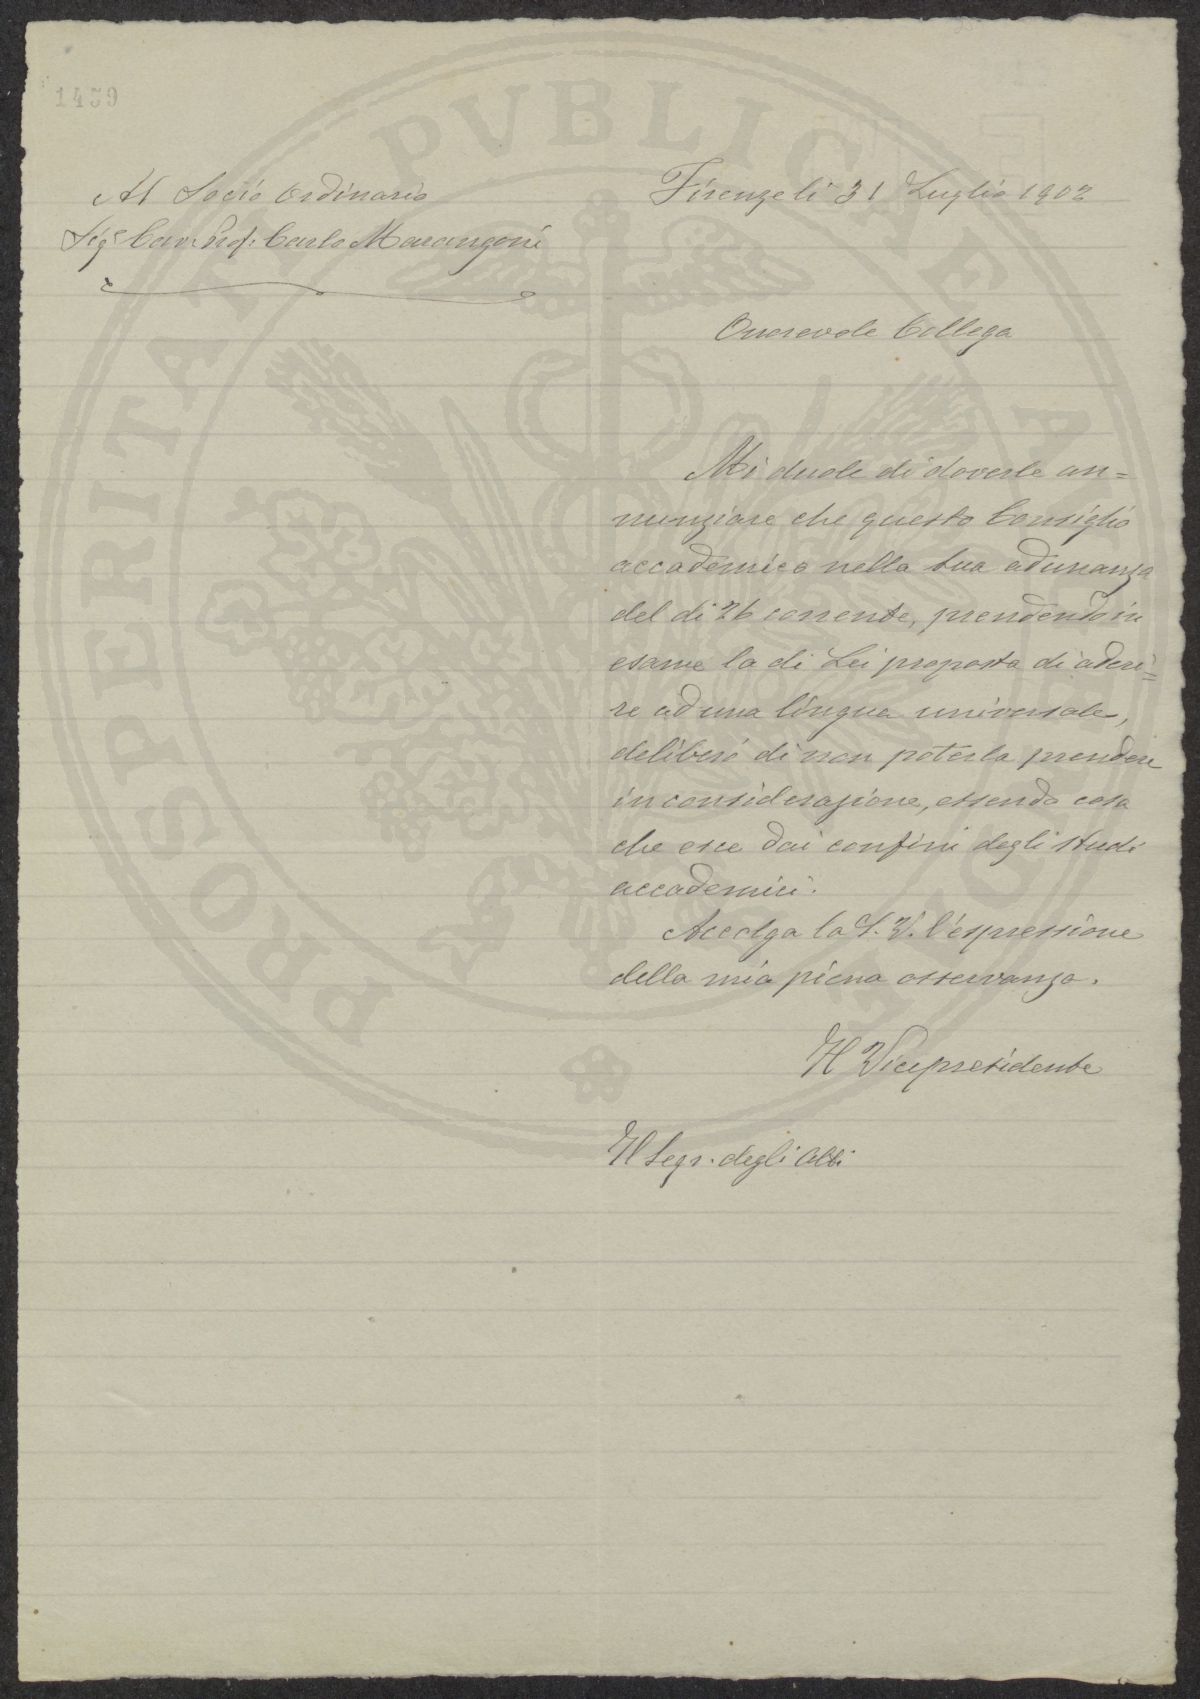 1459
Al Socio Ordinario
Sigr Cav. Prof. Carlo Marangoni
Firenze li 31 Luglio 1902
Onorevole Collega
Mi duole di doverle an=
nunziare che questo Consiglio
accademico nella sua adunanza
del di 26 corrente, prendendo in
esame la di Lei proposta di aderi=
re ad una lingua universale,
deliberò di non poterla prendere
in considerazione, essendo cosa
che esce dai confini degli studi
accademici.
Accolga la S. V. l'espressione
della mia piena osservanza.
Il Vicepresidente
Il Segr. degli Atti
PROSPERITATI PVBLICAE AVGENDAE